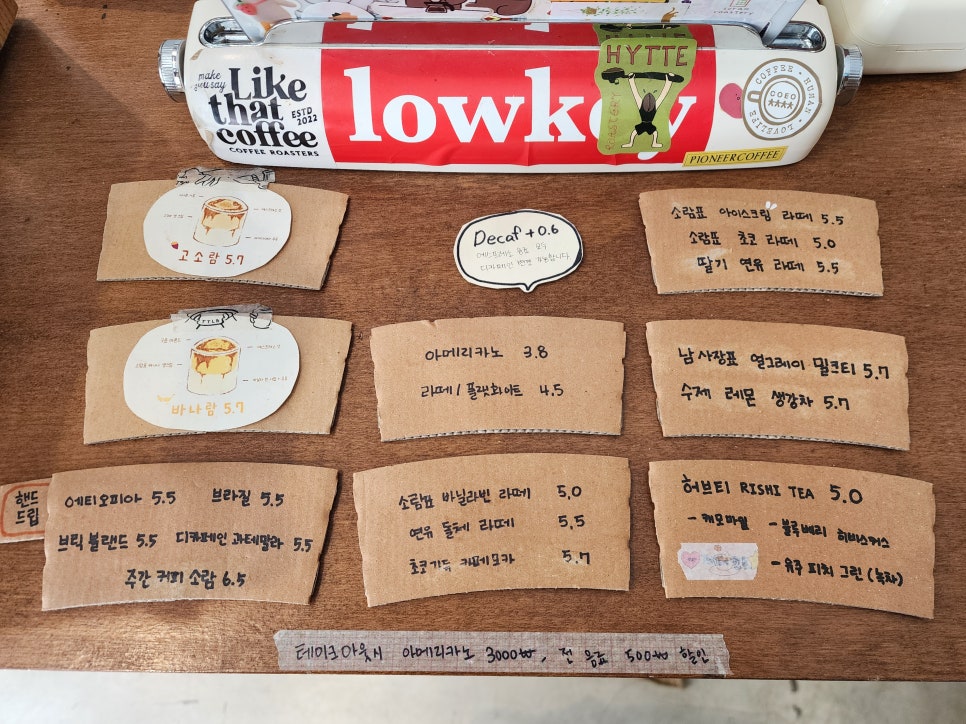 make
you say
Like
that
coffee
ESTD
2022
COFFEE ROASTERS
lowkey
HYTTE
ROASTERY
COFFEE · HUMAN · LOVELIFE
COEO
PIONEERCOFFEE
고소람 5.7
Decaf +0.6
에스프레소 음료 모두
디카페인 변경 가능합니다.
소람표 아이스크림 라떼 5.5
소람표 쵸코 라떼 5.0
딸기 연유 라떼 5.5
TTLB
바나람 5.7
아메리카노 3.8
라떼 / 플랫화이트 4.5
남사장표 얼그레이 밀크티 5.7
수제 레몬 생강차 5.7
핸드
드립
에티오피아 5.5 브라질 5.5
브릭 블랜드 5.5 디카페인 과테말라 5.5
주간 커피 소람 6.5
소람표 바닐라빈 라떼 5.0
연유 돌체 라떼 5.5
쵸코가득 카페모카 5.7
허브티 RISHI TEA 5.0
- 캐모마일 - 블루베리 히비스커스
- 유주 피치 그린 (녹차)
테이크아웃시 아메리카노 3000₩, 전 음료 500₩ 할인